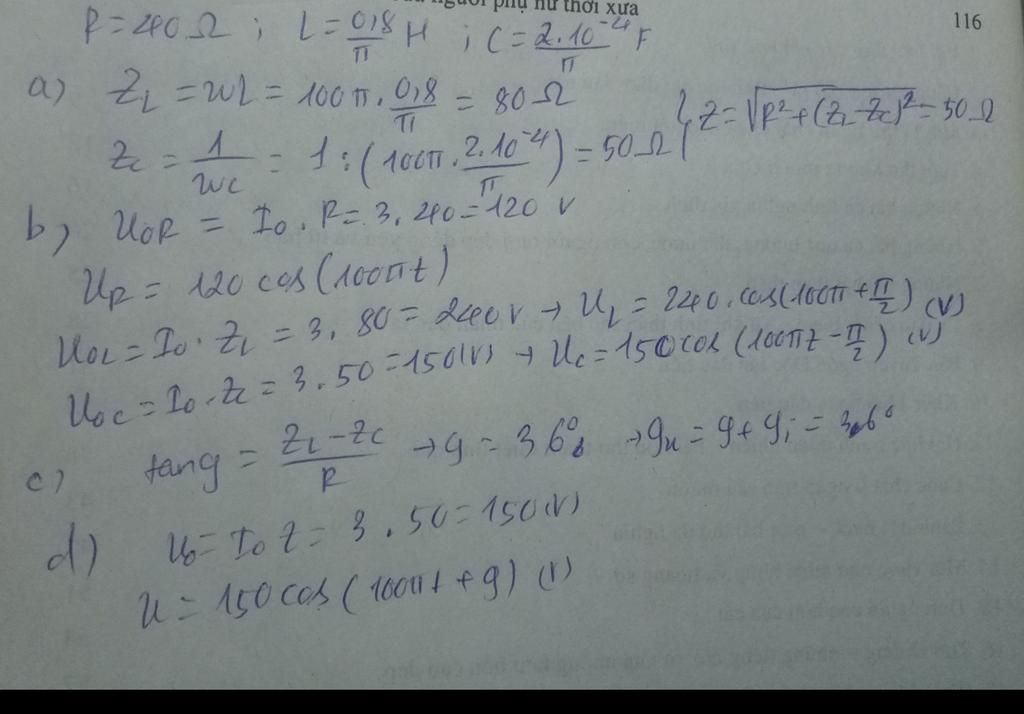 người phụ nữ thời xưa
116
R = 40 Ω ; L = 0,8/π H ; C = 2.10^-4/π F
a) Z_L = ωL = 100π . 0,8/π = 80 Ω
Z_C = 1/ωC = 1 : (100π . 2.10^-4/π) = 50 Ω
Z = √(R² + (Z_L - Z_C)²) = 50 Ω
b) U_0R = I_0 . R = 3. 40 = 120 V
U_R = 120 cos(100πt)
U_0L = I_0 . Z_L = 3. 80 = 240 V → U_L = 240. cos(100π + π/2) (V)
U_0C = I_0 . Z_C = 3. 50 = 150 (V) → U_C = 150 cos (100πt - π/2) (V)
c) tan φ = Z_L - Z_C / R → φ = 36° → φ_u = φ + φ_i = 36°
d) U_0 = I_0 Z = 3. 50 = 150 (V)
u = 150 cos (100πt + φ) (V)